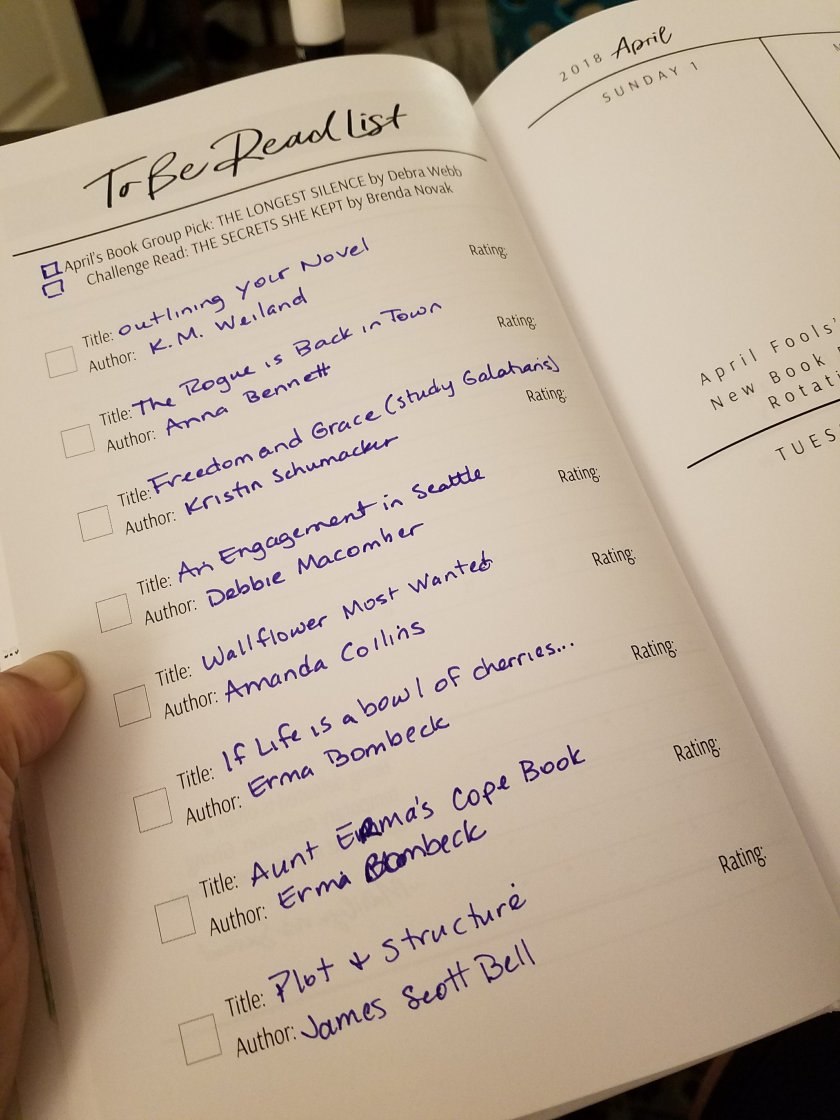 To Be Read List
April's Book Group Pick: THE LONGEST SILENCE by Debra Webb
Challenge Read: THE SECRETS SHE KEPT by Brenda Novak
Title: outlining your Novel
Author: K.M. Weiland
Rating:
Title: The Rogue is Back in Town
Author: Anna Bennett
Rating:
Title: Freedom and Grace (study Galatians)
Author: Kristin Schumacker
Rating:
Title: An Engagement in Seattle
Author: Debbie Macomber
Rating:
Title: Wallflower Most Wanted
Author: Amanda Collins
Rating:
Title: If Life is a bowl of cherries...
Author: Erma Bombeck
Rating:
Title: Aunt Erma's Cope Book
Author: Erma Bombeck
Rating:
Title: Plot + Structure
Author: James Scott Bell
Rating:
2018 April
SUNDAY 1
April Fools'
New Book
Rotati
TUES